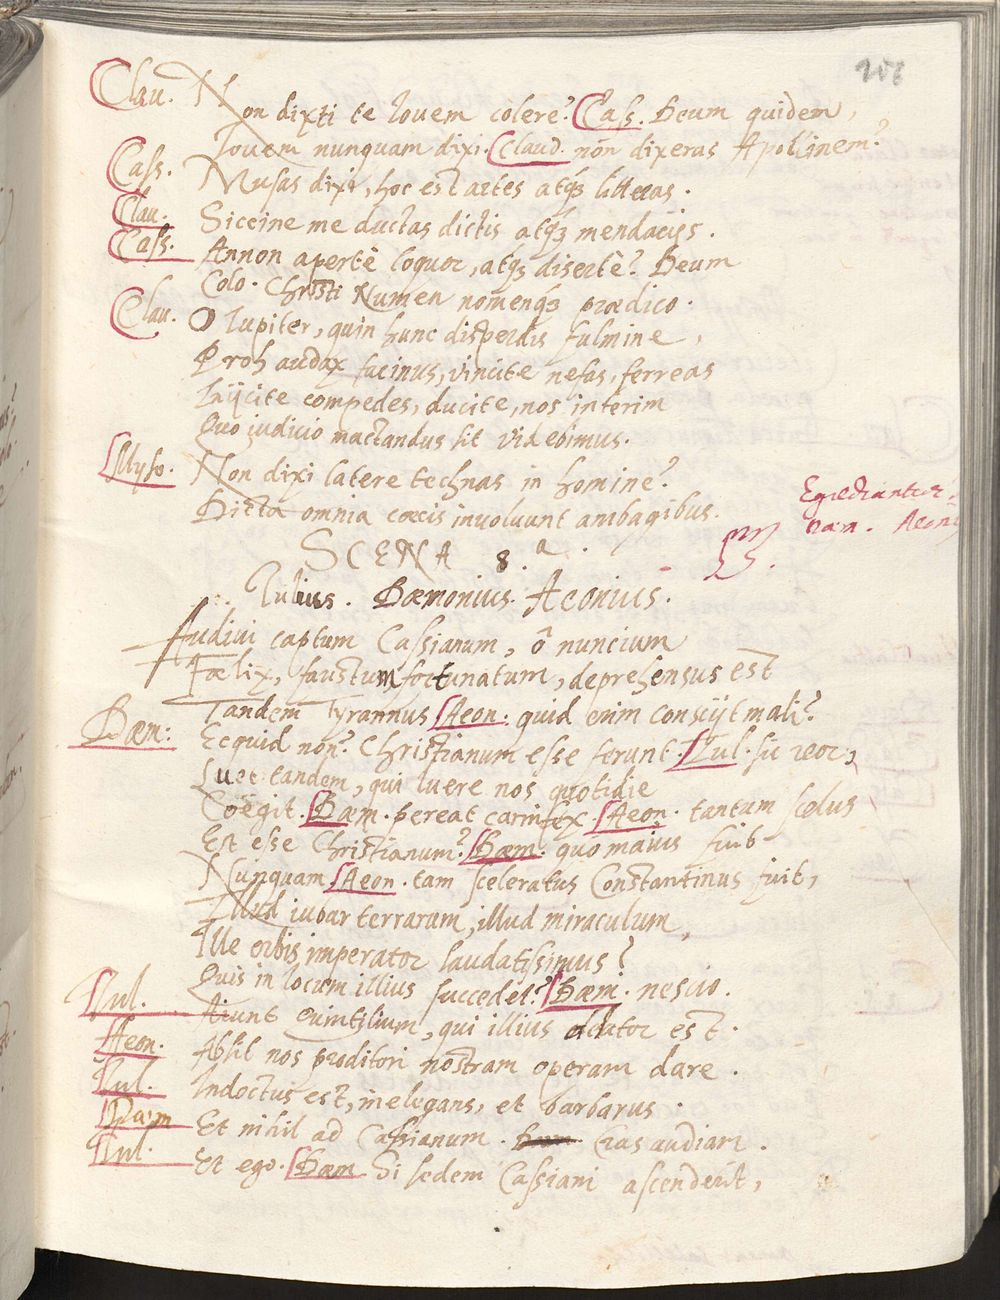 Clau. Non dixti te Iovem colere? Cass. Deum quidem,
Iovem nunquam dixi. Claud. non dixeras Apollinem?
Cass. Musas dixi, hoc est artes atq3 litteras.
Clau. Siccine me ductas dictis atq3 mendacijs.
Cass. Annon apertè loquor, atq3 disertè? Deum
Colo. Christi Numen nomenq3 prædico.
Clau. O Iupiter, quin hunc disperdis fulmine,
Proh audax facinus, vincite nefas, ferreas
Iniicite compedes, ducite, nos interim
Quo iudicio mactandus sit videbimus.
Non dixi latere technas in homine?
Dicta omnia cæcis involuunt ambagibus.
Egrediantur
Dæm. Aeoni
SCENA 8.a
Iulius. Dæmonius. Aeonius.
Audiui captum Cassianum, ô nuncium
Fœlix, faustum fortunatum, deprehensus est
Tandem Tyrannus Aeon. quid enim conscijt mali?
Dæm: Ecquid non? Christianum esse ferunt. Iul. sic reor,
Luet tandem, qui luere nos quotidie
Coëgit. Dæm. pereat carnifex. Aeon. tantum scelus
Est esse Christianum? Dæm. quo maius fuit
Nunquam Aeon. tam sceleratus Constantinus fuit,
Illud iubar terrarum, illud miraculum,
Ille orbis imperator laudatissimus?
Quis in locum illius succedet? Dæm. nescio.
Iul. Aiunt qui illius est.
Aeon. Absit nos proditori nostram operam dare.
Iul. Indoctus est, inelegans, et barbarus.
Dæm Et nihil ad Cassianum. Cras audiam.
Iul. Et ego. Dæm. Si sedem Cassiani ascenderit,